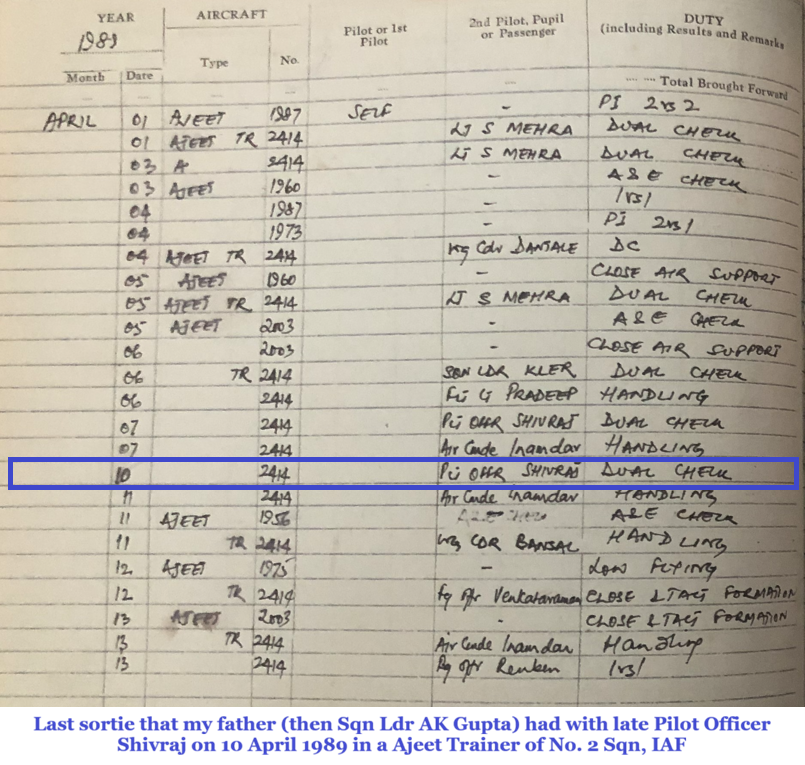 YEAR AIRCRAFT Pilot or 1st Pilot 2nd Pilot, Pupil or Passenger DUTY (including Results and Remarks
1989
Month Date Type No.
Total Brought Forward
APRIL 01 AJEET 1987 SELF - PI 2 vs 2
01 AJEET TR 2414 Lt S MEHRA DUAL CHECK
03 A 2414 Lt S MEHRA DUAL CHECK
03 AJEET 1960 - A & E CHECK
04 1987 - 1vs1
04 1973 - PI 2vs1
04 AJEET TR 2414 Wg Cdr DC
05 AJEET 1960 - CLOSE AIR SUPPORT
05 AJEET TR 2414 Lt S MEHRA DUAL CHECK
05 AJEET 2003 - A & E CHECK
06 2003 - CLOSE AIR SUPPORT
06 TR 2414 SQN LDR KLER DUAL CHECK
06 2414 PRADEEP HANDLING
07 2414 OFFR SHIVRAJ DUAL CHECK
07 2414 Air Cmde Inamdar HANDLING
10 2414 OFFR SHIVRAJ DUAL CHECK
11 2414 Air Cmde Inamdar HANDLING
11 AJEET 1956 A&E CHECK
11 TR 2414 Wg CDR BANSAL HANDLING
12 AJEET 1975 - LOW FLYING
12 TR 2414 Fg offr Venkataraman CLOSE & TACT FORMATION
13 AJEET 2003 - CLOSE & TACT FORMATION
13 TR 2414 Air Cmde Inamdar Handling
13 2414 Fg offr Reuben 1vs1
Last sortie that my father (then Sqn Ldr AK Gupta) had with late Pilot Officer
Shivraj on 10 April 1989 in a Ajeet Trainer of No. 2 Sqn, IAF